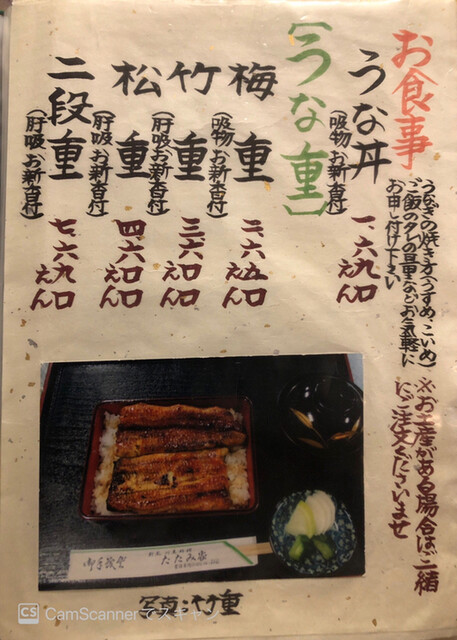 お食事
うな丼
(吸物、お新香付)
一、六九〇
えん
うなぎの焼き方(うすめ、こいめ)
ご飯のタレの量などお気軽に
お申し付け下さい
※お土産がある場合はご一緒
にご注文くださいませ
【うな重】
梅重
(吸物、お新香付)
二、六五〇
えん
竹重
(肝吸、お新香付)
三、六〇〇
えん
松重
(肝吸、お新香付)
四、六〇〇
えん
二段重
(肝吸、お新香付)
七、六九〇
えん
御手茂登
たたみ家
写真は竹重
CS CamScannerでスキャン